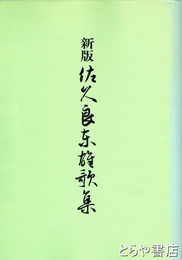 新版
佐久良東雄歌集
とらや書店